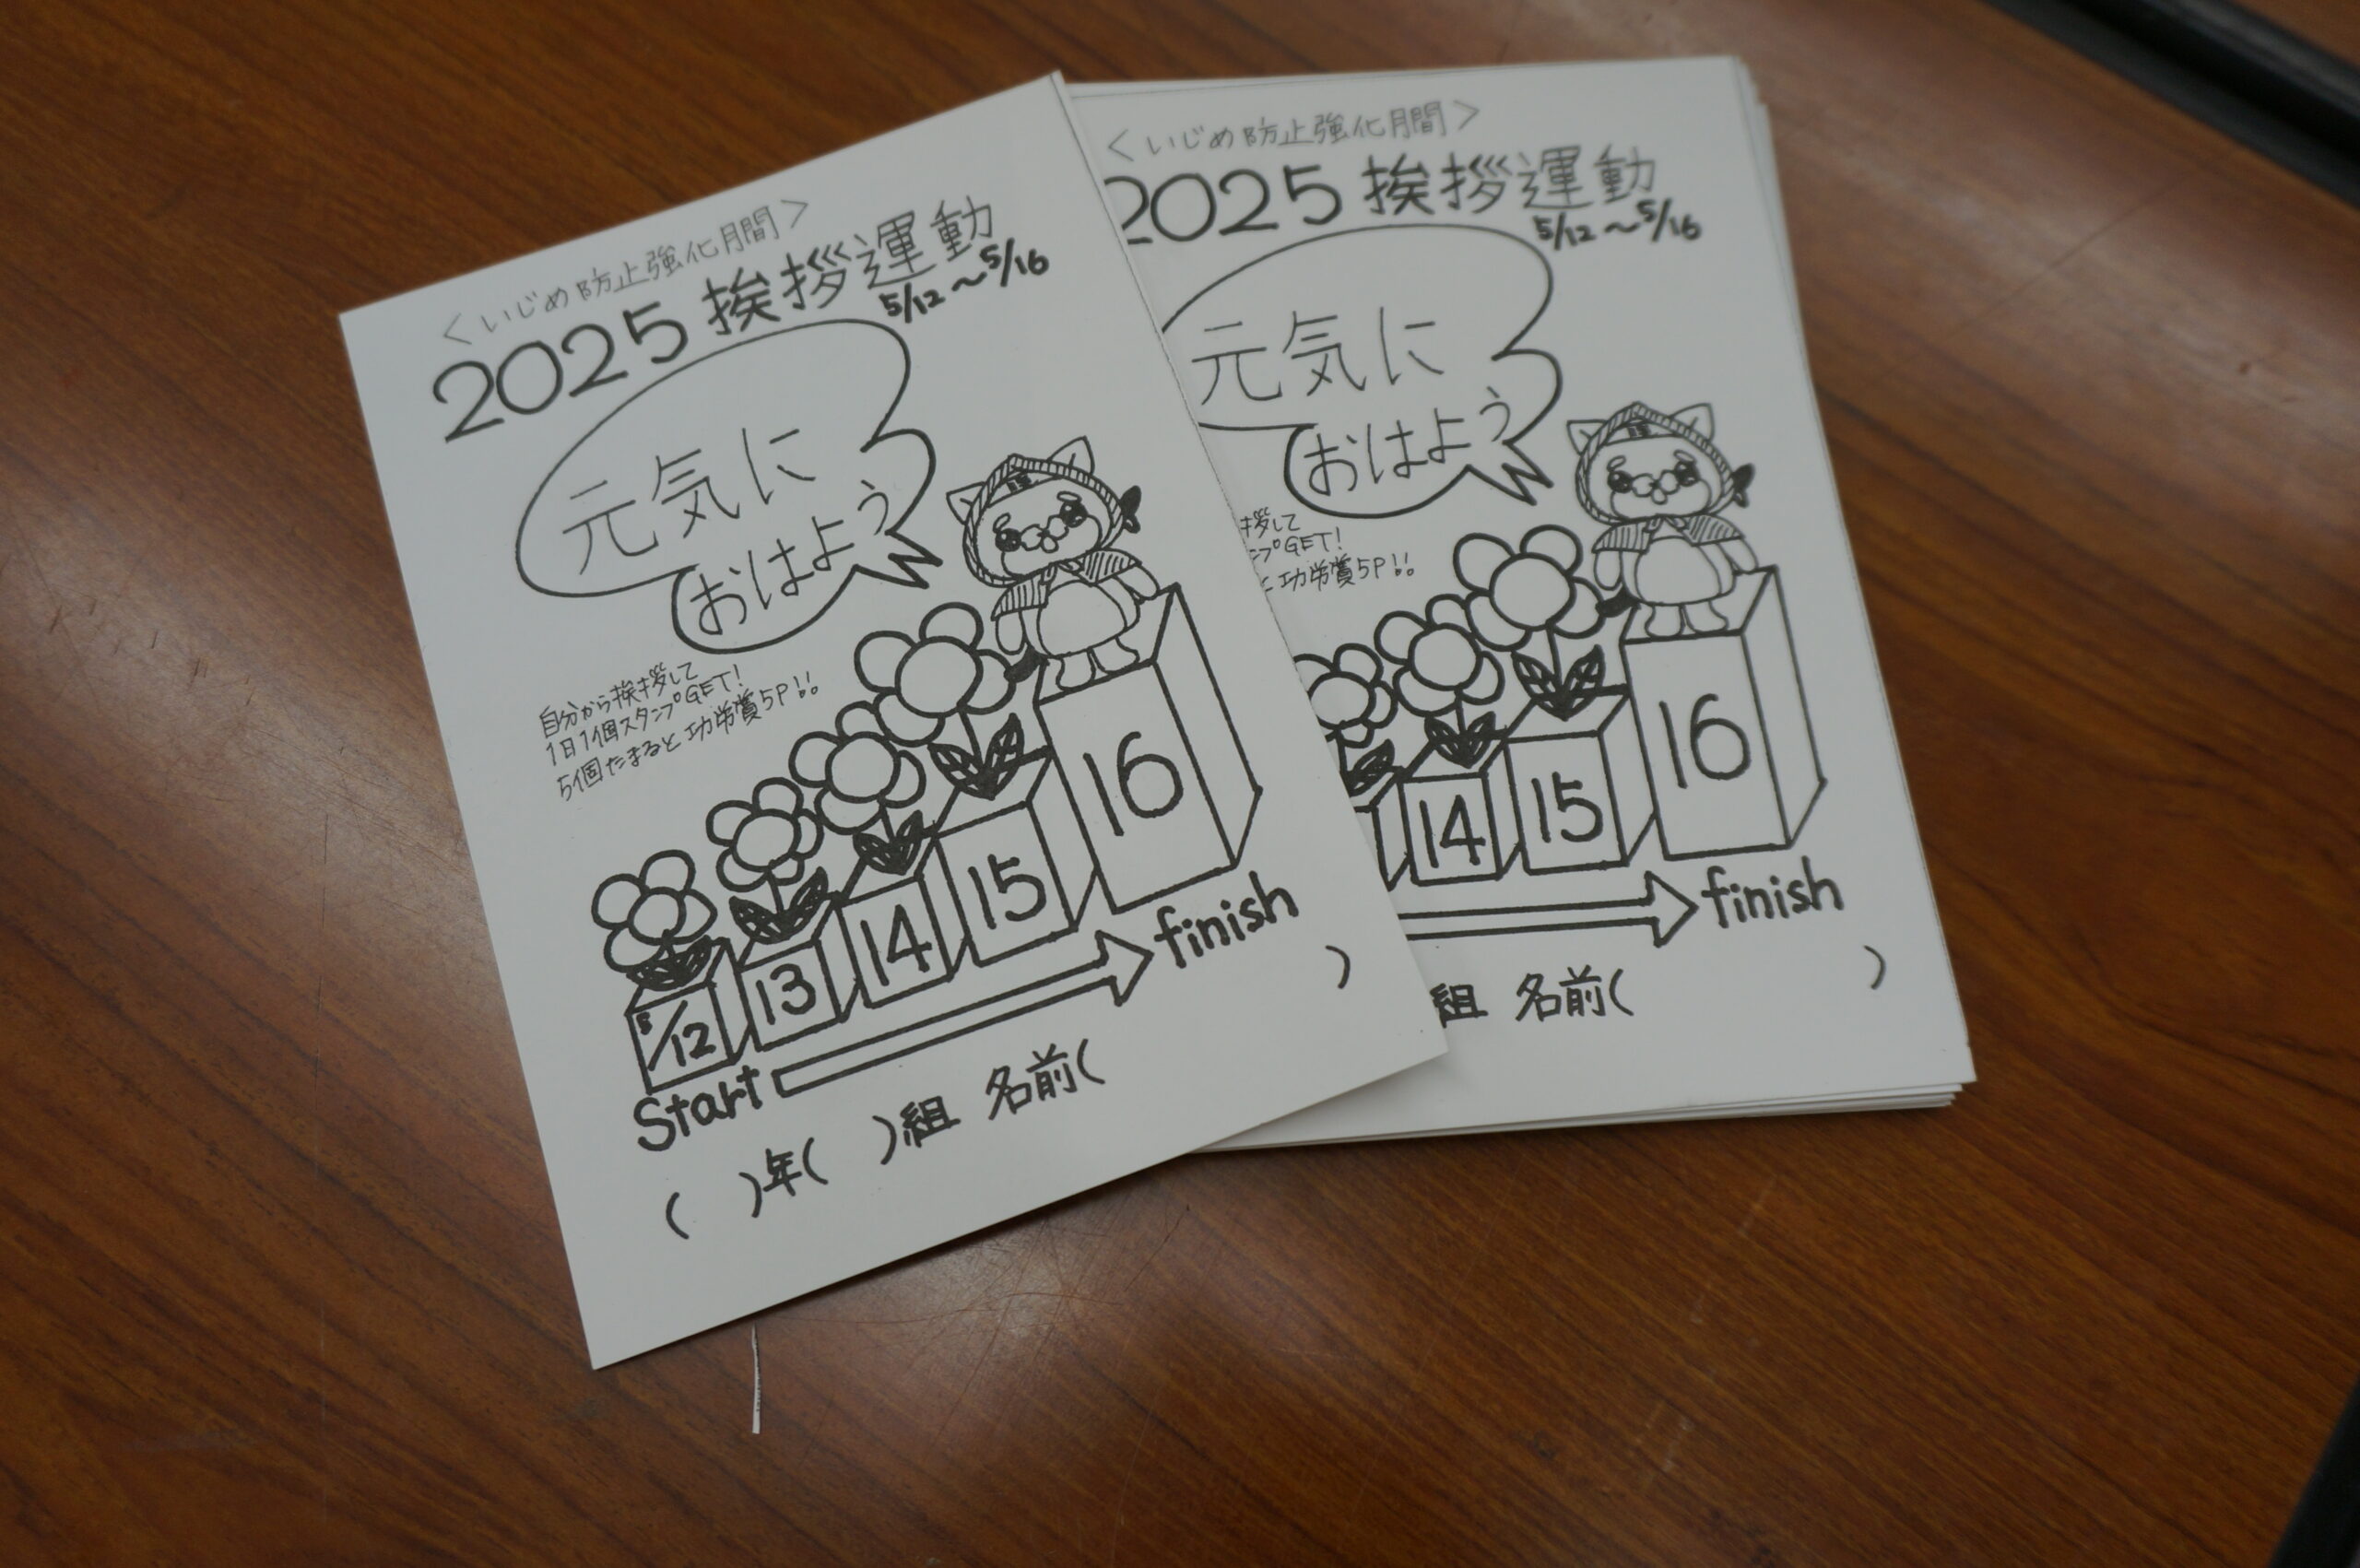 <いじめ防止強化月間>
2025 挨拶運動
5/12~5/16
元気に
おはよう
自分から挨拶して
1日1個スタンプGET!
5個たまると功労賞5P!!
5/12
13
14
15
16
Start
finish
( )年( )組 名前( )
<いじめ防止強化月間>
2025 挨拶運動
5/12~5/16
元気に
おはよう
拶して
プGET!
と功労賞5P!!
14
15
16
finish
組 名前( )